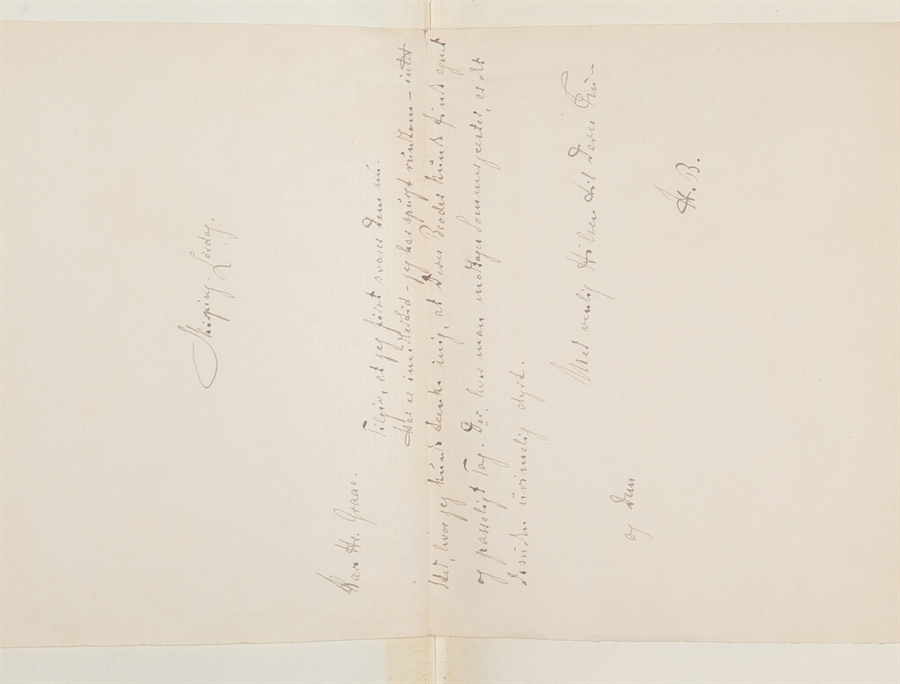 Skørping Lørdag.
Kære Hr. Graae.
Tilgiv, at jeg først svarer Dem nu.
Her er imidlertid – jeg har spurgt rundtom – intet
Sted, hvor jeg kunde tænke mig, at Deres Broder kunde finde egnet
og passeligt Tag. Dér, hvor man modtager Sommergæster, er det
desuden urimelig dyrt.
Med venlig Hilsen til Deres Frue
og Dem
H. B.